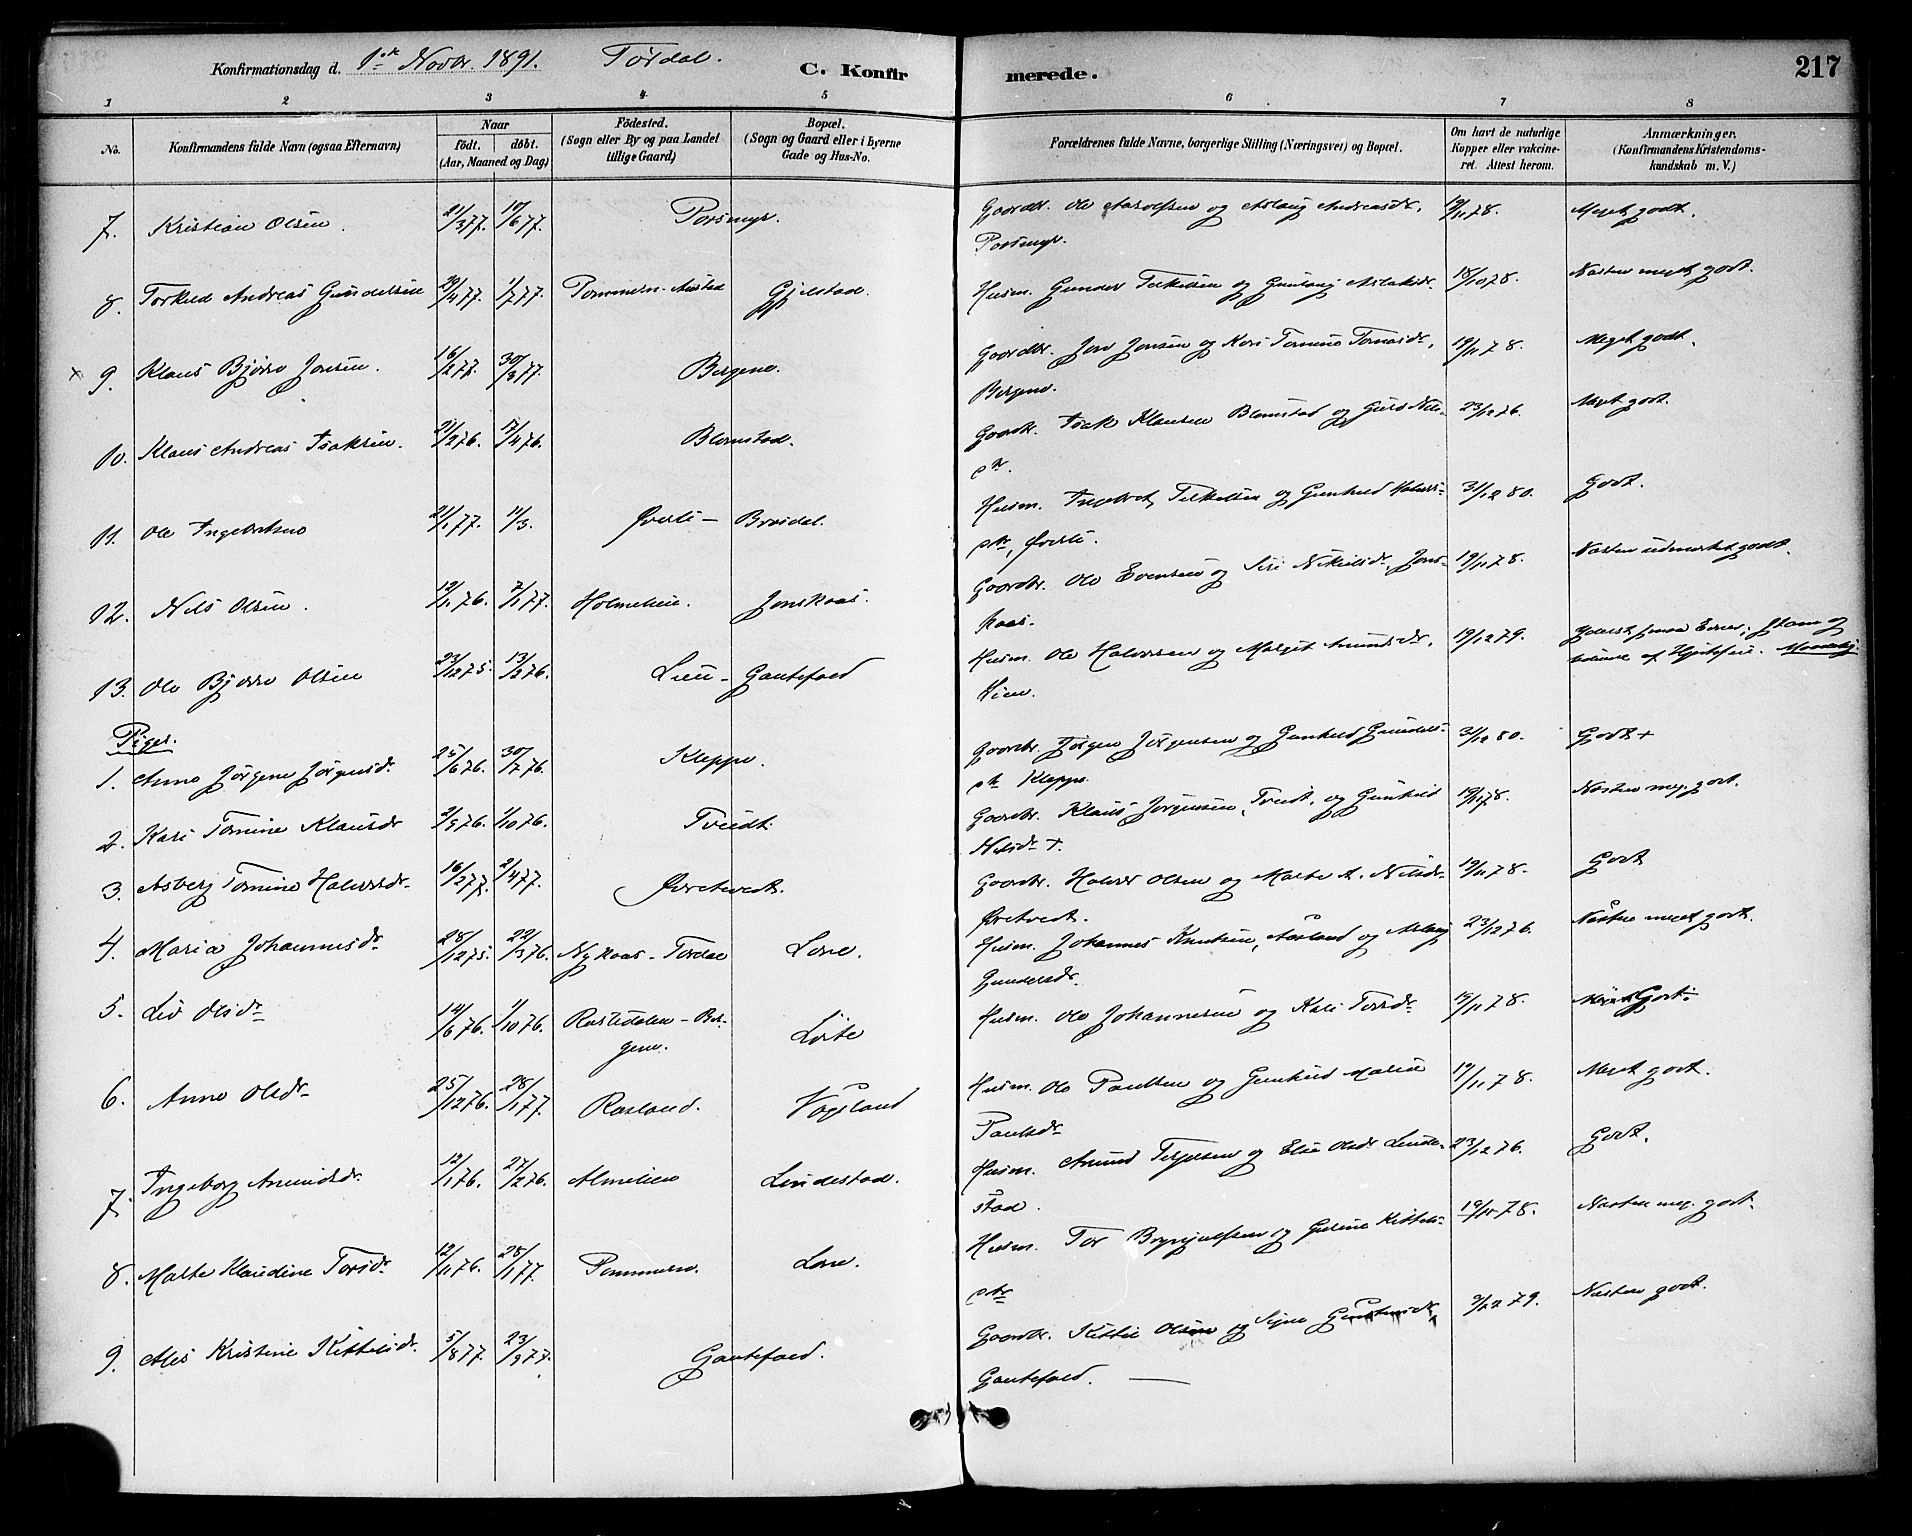 Konfirmationsdag d. 1ste Novbr. 1891. Tørdal. C. Konfirmerede. 217
1 2 3 4 5 6 7 8
No. Konfirmandens fulde Navn (ogsaa Efternavn) Naar født. døbt. (Aar, Maaned og Dag) Fødested. (Sogn eller By og paa Landet tillige Gaard) Bopæl. (Sogn og Gaard eller i byerne Gade og Hus-No. Forældrenes fulde Navne, borgerlige Stilling (Næringsvei) og Bopæl. Om havt de naturlige Kopper eller vakcineret. Attest herom. Anmærkninger. (Konfirmandens Kristendomskundskab m. V.)
7. Kristian Olsen. 21/3 77. 17/6 77. Porsmyr. Gaardbr. Ole Aasolfsen og Aslaug Andreasdr, 19/11 78. Meget godt.
Porsmyr.
8. Torkild Andreas Gundersen 29/4 77. 1/7 77. Pommern - Gjelstad. Husm. Gunder Terkelsen og Gunlaug Aslaksdr. 18/10 78. Næsten meget godt.
x 9. Klaus Bjørn Jonsen. 16/2 77. 30/3 77. Bergene. Gaardbr. Jon Jonsen og Kari Tomine Tomasdr, 19/11 78. Meget godt.
Bergene.
10. Klaus Andreas Isaksen. 21/2 76. 17/4 76. Blomstad. Gaardbr. Isak Klausen Blomstad og Guro Nils- 23/12 76. Meget godt.
dr.
11. Ole Ingebretsen 21/1 77. 11/3. Øverli - Brødal. Husm. Ingebret Terkelsen og Gunhild Halvors- 31/12 80. Godt.
dtr, Øverli.
12. Nils Olsen. 19/11 76. 7/1 77. Holmelien. Jonskaas. Gaardbr. Ole Evensen og Siri Nikulsdr. Jons- 19/11 78. Næsten udmærket godt.
kaas.
13. Ole Bjørn Olsen 23/12 75. 13/2 76. Lien - Gautefald Husm. Ole Halvorsen og Margit Amundsdr, 19/12 79. Yderst smaa Evner;
Lien.
Piger.
1. Anne Jørgine Jørgensdr. 25/6 76. 30/7 76. Kleppe. Gaardbr. Jørgen Jørgensen og Gunhild Gunders- 31/12 80. Godt +
dr Kleppe.
2. Kari Tomine Klausdr 3/9 76. 1/10 76. Tveidt. Gaardbr. Klaus Jørgensen, Tveidt, og Gunhild 19/11 78. Næsten meg. godt.
Nilsdr +.
3. Asberg Tomine Halvorsdr. 16/2 77. 2/4 77. Øvretveidt. Gaardbr. Halvor Olsen og Marte A. Nilsdr 19/11 78. Godt
Øvretvedt.
4. Maria Johannesdr. 28/12 75. 29/3 76. Nykaas - Tørdal Lone. Husm. Johannes Knudsen, Aasland og Aslaug 23/12 76. Næsten meget godt.
Gundersdr.
5. Liv Olsdr 14/6 76. 1/10 76. Rustedalen - Ber- Løite Husm. Ole Johannesen og Kari Torsdr 19/11 78. Godt.
gene.
6. Anne Olsdr 25/12 76. 28/1 77. Rasland. Vågsland Husm. Ole Paulsen og Gunhild Marie 19/11 78. Meget godt.
Paulsdr
7. Ingeborg Amundsdr. 12/1 76. 27/2 76. Almelien Lindestad. Husm. Amund Terjesen og Else Olsdr Linde- 23/12 76. Godt.
stad.
8. Marte Klaudine Torsdr 12/11 76. 28/1 77. Pommern. Lone. Husm. Tor Brynjulfsen og Guline Kittels- 19/11 78. Næsten meg. godt.
dtr
9. Ales Kristine Kittelsdr. 5/8 77. 23/9 77. Gautefald. Gaardbr. Kittel Olsen og Signe 3/12 79. Næsten godt.
Gautefald. —